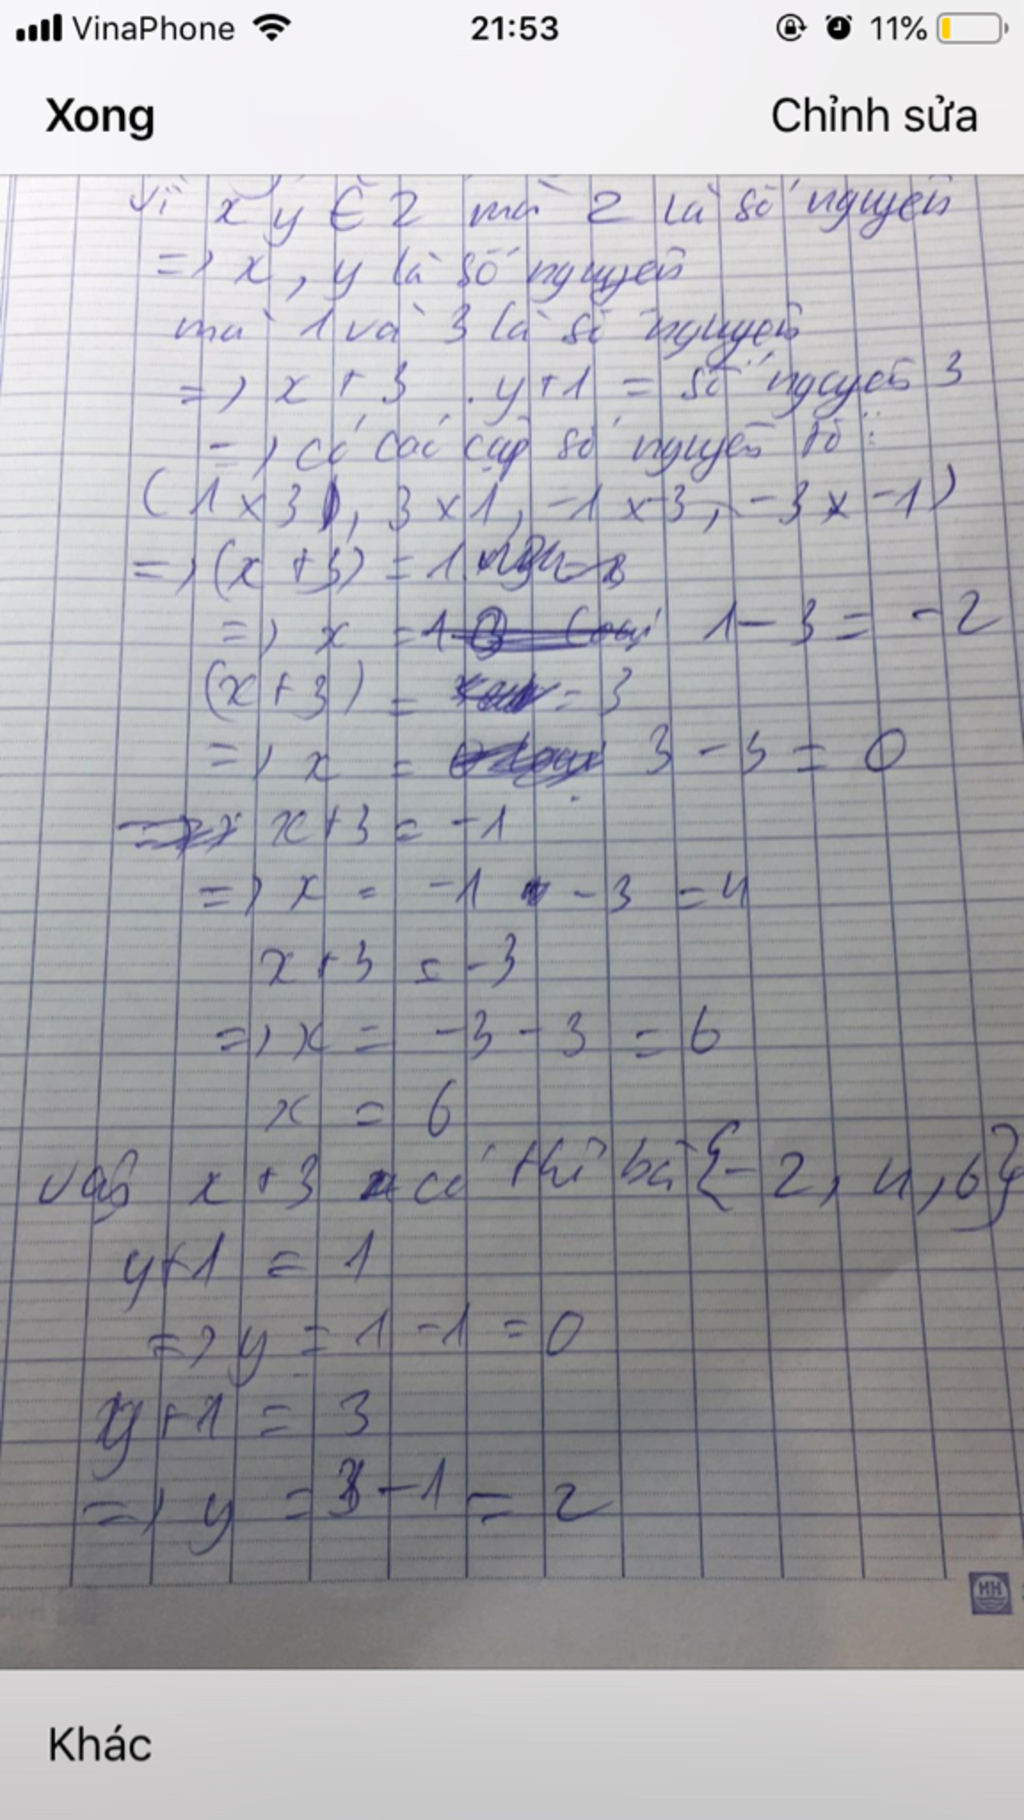 VinaPhone 21:53 11%
Xong Chỉnh sửa
Vì x y ∈ Z mà Z là số nguyên
=> x, y là số nguyên
mà 1 và 3 là số nguyên
=> x + 3 . y + 1 = số nguyên 3
=> có các cặp số nguyên tố:
(1 x 3), 3 x 1, -1 x -3, -3 x -1)
=> (x + 3) = 1
=> x = 1 - 3 = -2
(x + 3) = = 3
=> x = 3 - 3 = 0
x + 3 = -1
=> x = -1 - 3 = 4
x + 3 = -3
=> x = -3 - 3 = 6
x = 6
Vậy x + 3 có thể là {-2, 4, 6}
y + 1 = 1
=> y = 1 - 1 = 0
y + 1 = 3
=> y = 3 - 1 = 2
HH
Khác